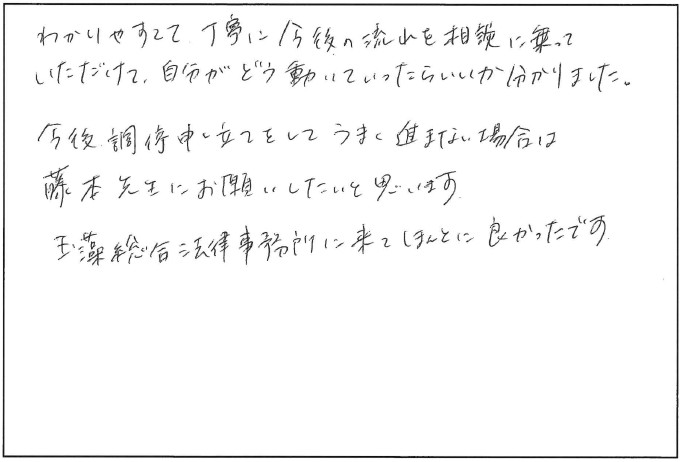 わかりやすくて、丁寧に今後の流れを相談に乗って
いただけて、自分がどう動いていったらいいか分かりました。
今後、調停申し立てをしてうまく進まない場合は
藤本先生にお願いしたいと思います
玉藻総合法律事務所に来てほんとに良かったです